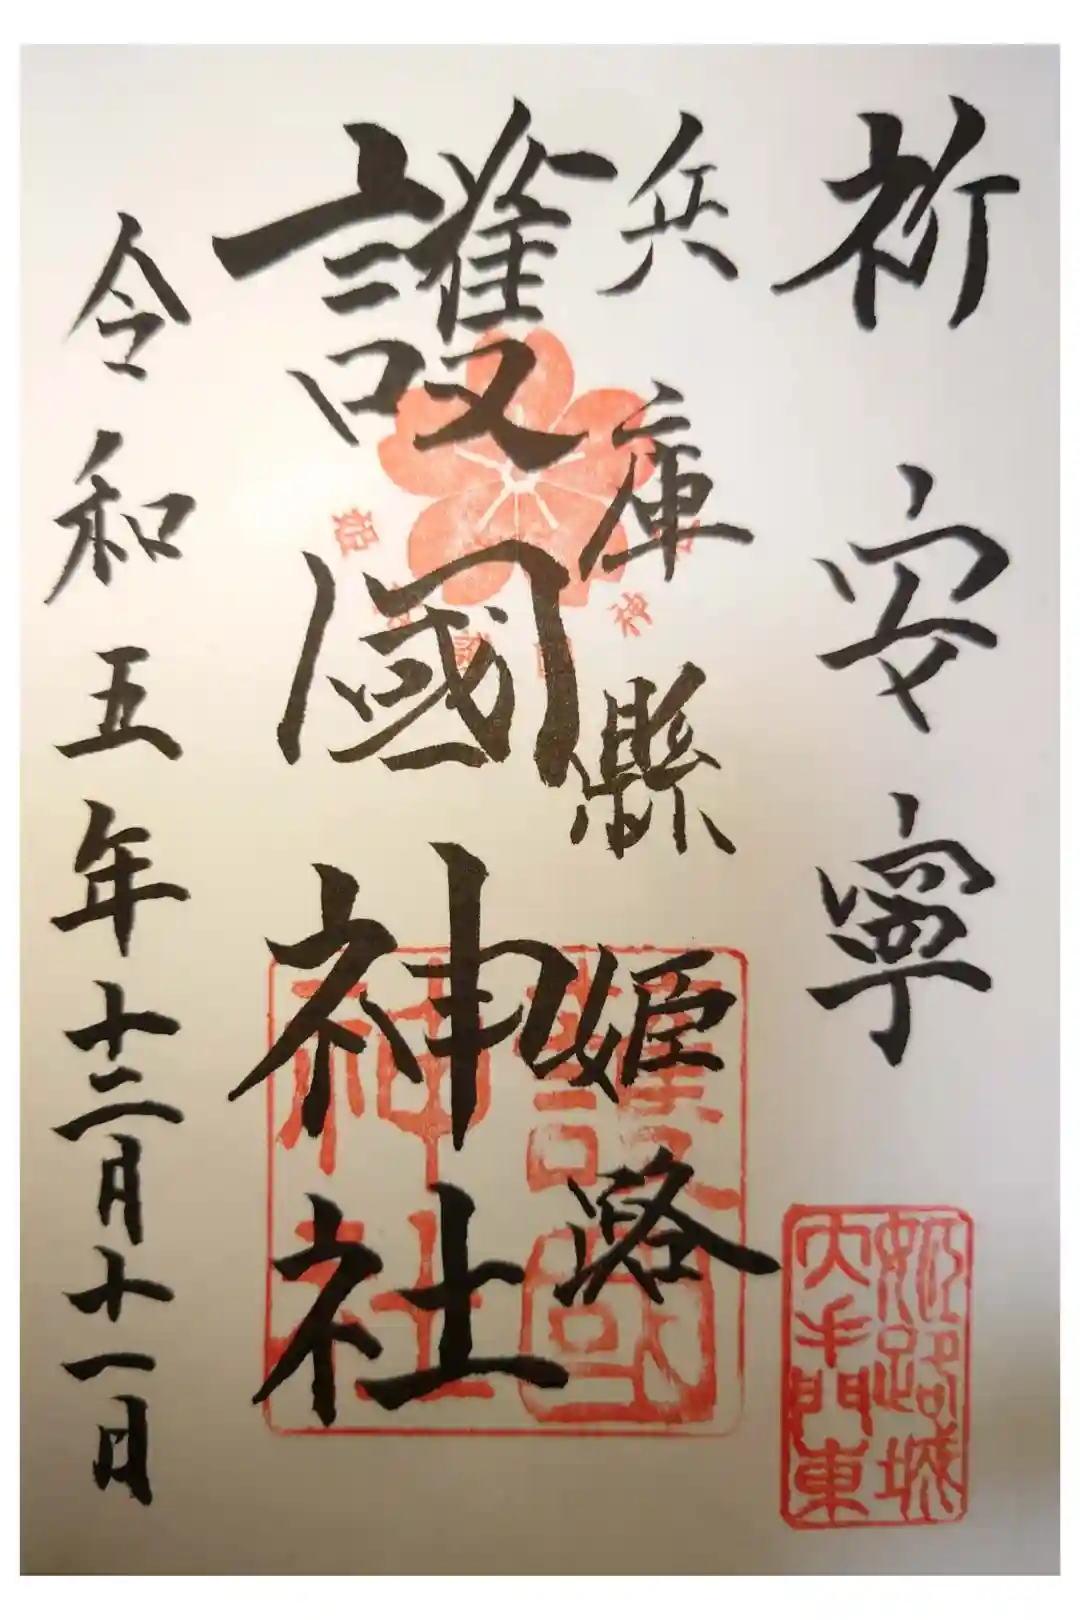 祈安寧
兵庫縣姫路
護國神社
令和五年十二月十一日
護國
神社
姫路城
大手門東